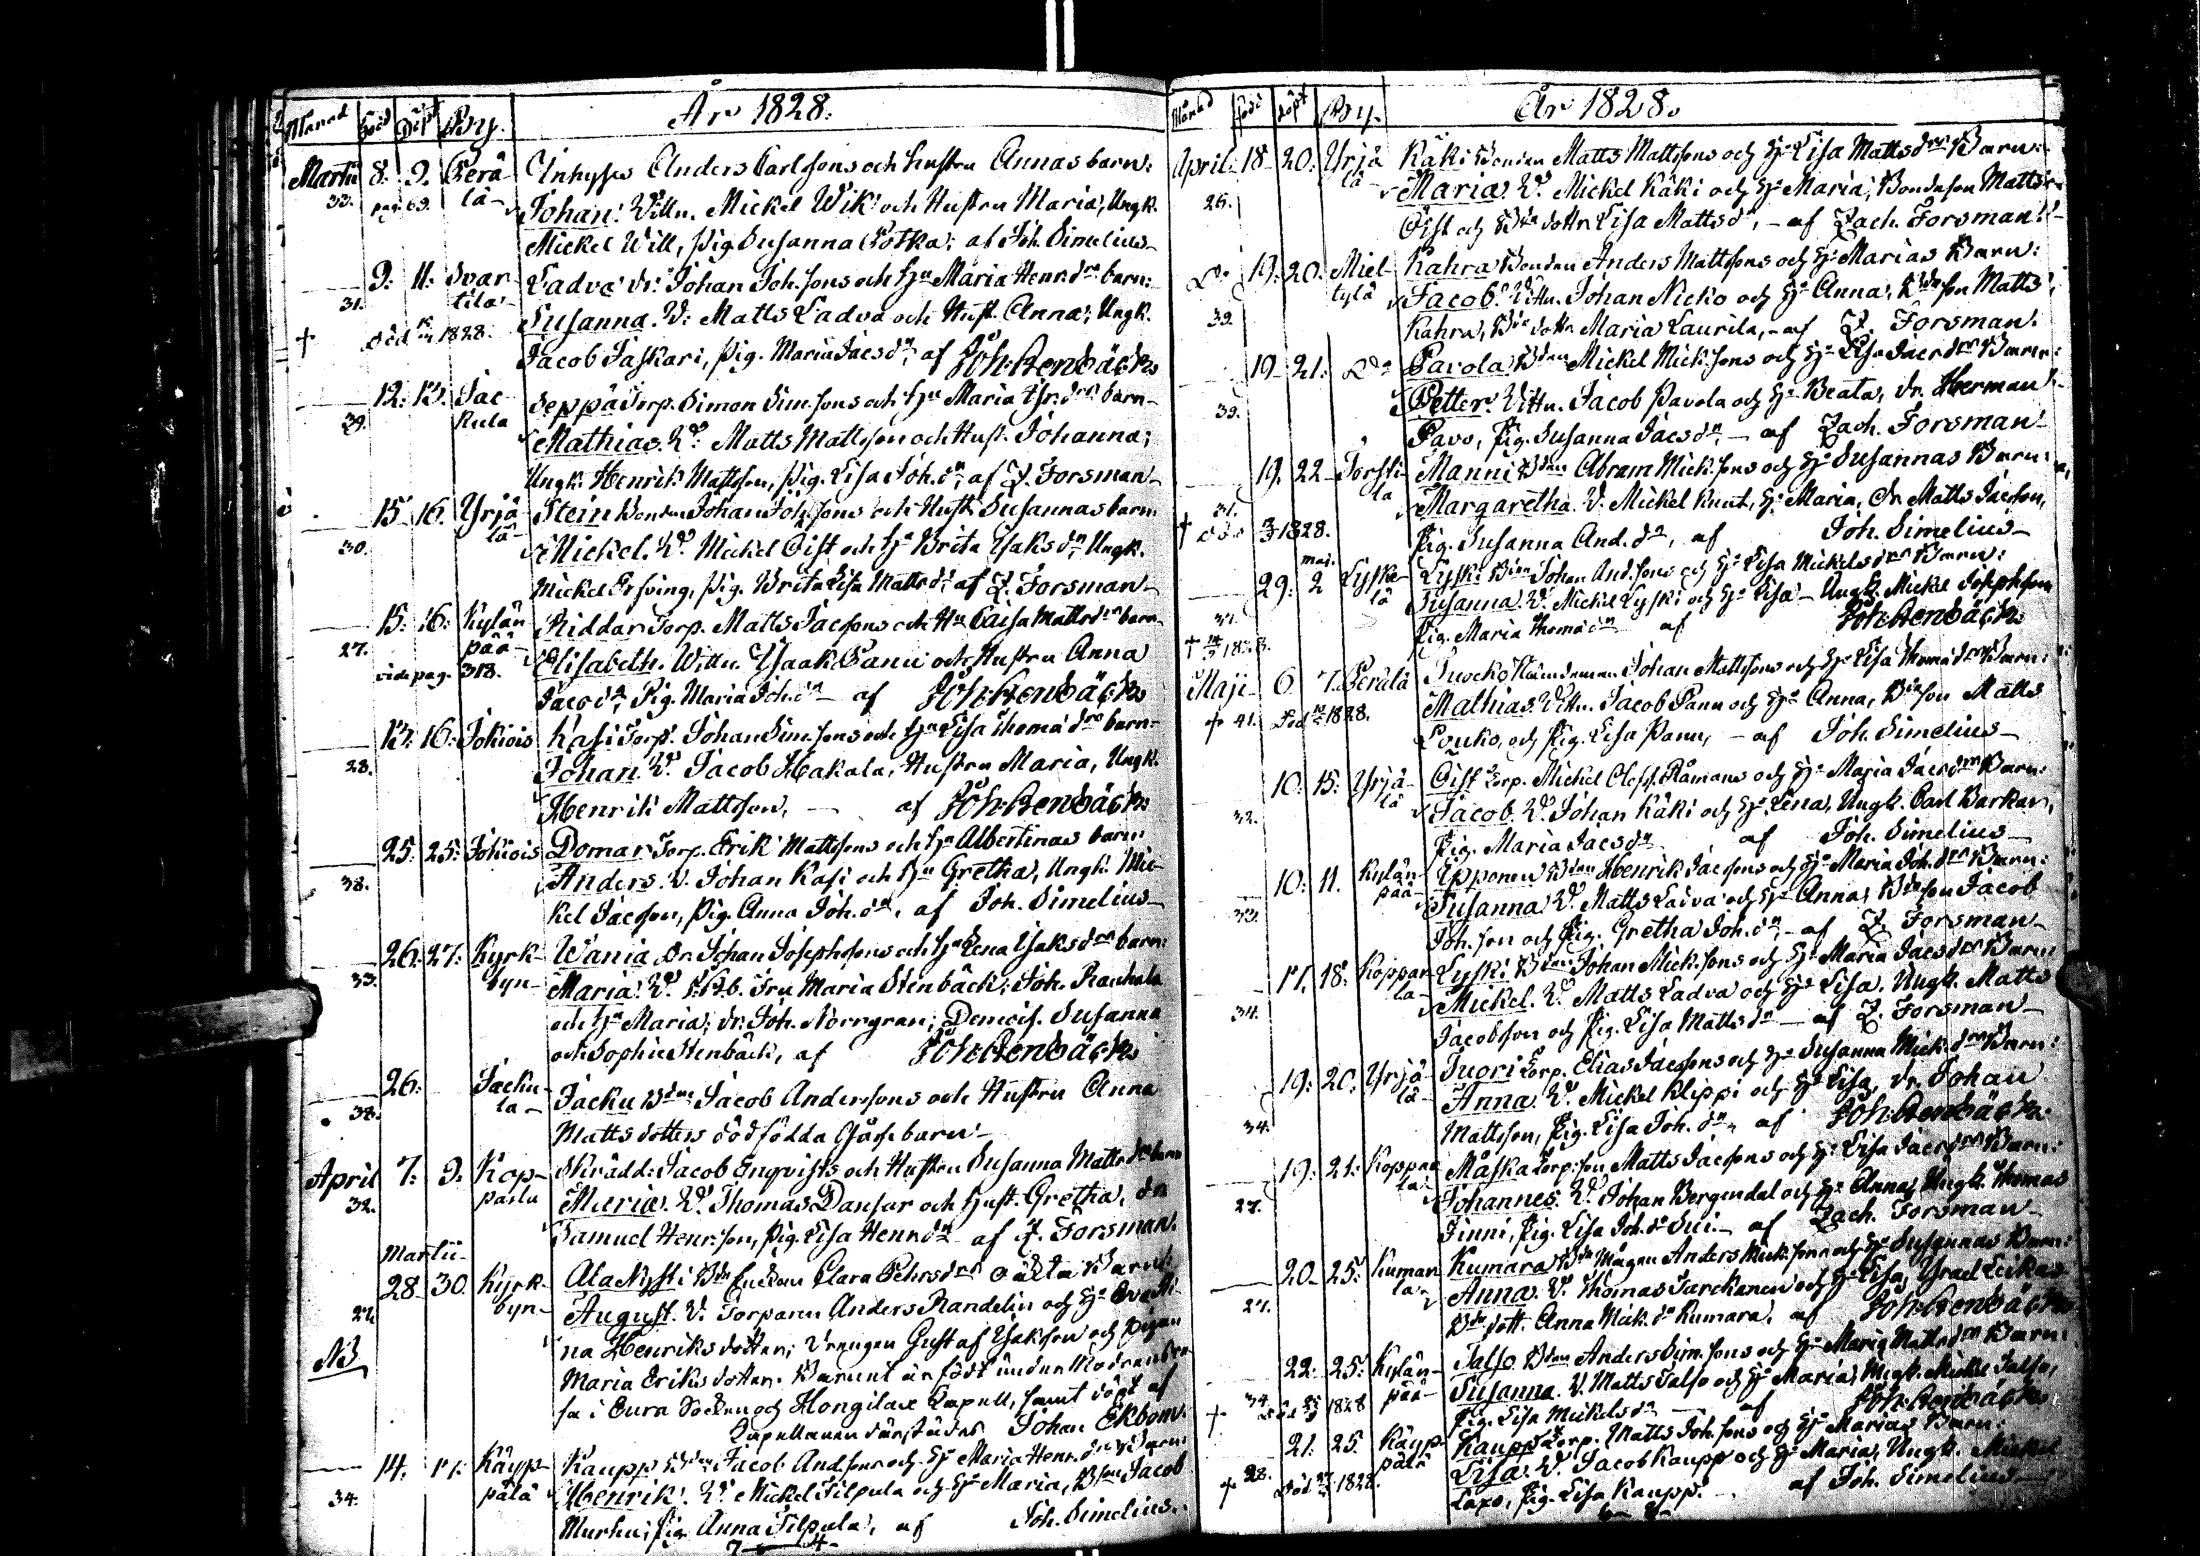 Månad Född Döpt By. År 1828.
Martii 8. 9. Perä- Inhyses Anders Carlssons och hustru Annas barn:
33. pag. 69. lä- Johan. Vittn. Mickel Wik och Hustru Maria, Ungk.
Mickel Will, pig. Susanna Potka; af Joh. Simelius
9. 11. Svar- Ladva dr. Johan Joh.sons och Hu Maria Henr.drs barn:
31. tila- Susanna. V. Matts Ladva och Hust. Anna; Ungk.
+ död 1828. Jacob Jaskari, pig. Maria Jacsdr, af Joh. Stenbäck
12. 13. Jac- Seppä Torp. Simon Sim.sons och Hu Maria drs barn
39. kula Mathias. V. Matts Mattsson och Hust. Johanna;
Ungk. Henrik Mattsson, Pig. Lisa Joh.dr, af Z. Forsman
15. 16. Yrjä- Stein Bonden Johan Joh.sons och Hust. Susannas barn
30. lä- Mickel. V. Mickel Qist och Hu Brita Isaksdr Ungk.
Mickel pig. Brita Lisa Mattsdr af Z. Forsman
15. 16. Kylän- Riddar Torp. Matts Jacssons och Hu Caisa Mattsdrs barn
27. pää- Elisabeth. Wittn. Isaak Panu och Hustru Anna
vide pag. 318. Jacsdr, Pig. Maria Joh.dr af Joh. Stenbäck
13. 16. Jokiois Kasi Torp. Johan Sim.sons och Hu Lisa Thomædrs barn
28. Johan. V. Jacob Hakala, Hustru Maria, Ungk.
Henrik Mattsson, af Joh. Stenbäck
25. 25. Jokiois Domar Torp. Erik Mattssons och Hu Albertinas barn
38. Anders. V. Johan Kasi och Hu Gretha, Ungk. Mic-
kel Jacsson, Pig. Anna Joh.dr, af Joh. Simelius
26. 27. Kyrk- Wania dr. Johan Josephssons och Hu Lena Isaksdrs barn:
33. byn- Maria. V. Fru Maria Stenbäck; Joh. Rauhala
och Hu Maria; dr. Joh. Norrgran; Demois. Susanna
och Sophie Stenbäck, af Joh. Stenbäck
26. Jacku- Jacku Bdns Jacob Anderssons och Hustru Anna
38. la- Mattsdotters dödfödda Gåssebarn
April 7. 9. Kop- Skrädd. Jacob Enqvists och Hustru Susanna Mattsdrs barn
32. parla Maria. V. Thomas Dansar och Hust. Gretha, dr
Samuel Henr.son, pig. Lisa Henr.dr af Z. Forsman.
Martii
28 30. Kyrk- Ala Nysti Enckan Clara Pehrsdrs oäkta Barn:
27. byn- August. V. Torparn Anders Randelin och Hu
NB na Henriksdotter; drengen Gustaf Isaksson och Pigan
Maria Eriksdotter. Barnet är född under Modrens
i Eura Socken och Hongilax Capell, samt döpt af
Capellanen därstädes Johan Ekbom.
14. 17. Käyp- Kaupp Bdns Jacob And.sons och Hu Maria Henr.drs Barn
34. pälä Henrik. V. Mickel Tilpula och Hu Maria, Bson Jacob
Murhu; Pig. Anna Tilpula, af Joh. Simelius.
Månad född döpt By. År 1828.
April. 18. 20. Yrjä- Käki Bonden Matts Mattssons och Hu Lisa Mattsdrs Barn:
26. lä Maria. V. Mickel Käki och Hu Maria; Bondeson Matts
Qist och dottr. Lisa Mattsdr, af Zach. Forsman
Do 19. 20. Miel- Kahra Bonden Anders Mattssons och Hu Marias Barn:
39. tylä Jacob. Vittn. Johan Nicko och Hu Anna; Bdeson Matts
Kahra, dottr Maria Laurila, af Z. Forsman.
19. 21. Do Pavola Bdns Mickel Mick.sons och Hu Lisa Jacsdrs Barn:
39. Petter. Vittn. Jacob Pavola och Hu Beata, dr. Herman
Pavo, Pig. Susanna Jacsdr, af Zach. Forsman
19. 22. Torsti- Manni Bdns Abram Mick.sons och Hu Susannas Barn:
31. la Margaretha. V. Mickel Knut, Hu Maria, dr. Matts Jacsson,
+ död 1828. Pig. Susanna And.dr, af Joh. Simelius
29. maj. 2 Lyske- Lyski Bdns Johan And.sons och Hu Lisa Mickelsdrs Barn:
37. lä Susanna. V. Mickel Lyski och Hu Lisa Ungk. Mickel Josephson
+ 1828. Pig. Maria Thomædr af Joh. Stenbäck
Maji 6. 7. Perälä Nämndeman Johan Mattssons och Hu Lisa Thomædrs Barn:
+ 41. död 1828. Mathias. Vittn. Jacob Panu och Hu Anna, Bdeson Matts
Louko, och Pig. Lisa Panu, af Joh. Simelius
10. 15. Yrjä- Qist Torp. Mickel Råmans och Hu Maria Jacsdrs Barn:
32. lä Jacob. V. Johan Käki och Hu Lena, Ungk. Carl Barkar,
Pig. Maria Jacsdr af Joh. Simelius
10. 11. Kylän- Epponen Bdns Henrik Jacssons och Hu Maria Joh.drs Barn:
33. pää Susanna. V. Matts Ladva och Hu Anna, Bdeson Jacob
Joh.son och Pig. Gretha Joh.dr, af Z. Forsman
17. 18. Koppar- Lyski Bdns Johan Mick.sons och Hu Maria Jacsdrs Barn
34. la Mickel. V. Matts Ladva och Hu Lisa. Ungk. Matts
Jacobsson och Pig. Lisa Mattsdr af Z. Forsman
19. 20. Yrjä- Tuori Torp. Elias Jacssons och Hu Susanna Mick.drs Barn:
34. lä Anna. V. Mickel Klippi och Hu Lisa, dr. Johan
Mattsson, Pig. Lisa Joh.dr, af Joh. Stenbäck
19. 21. Koppar- Måska Torp.son Matts Jacssons och Hu Lisa Jacsdrs Barn:
27. la Johannes. V. Johan Bergendal och Hu Anna, Ungk. Thomas
Finni, Pig. Lisa Joh.dr af Zach. Forsman
20. 25. Kuman- Kumara Bde Mågen Anders Mick.sons och Hu Susannas Barn:
27. la Anna. V. Thomas Tarckanen och Hu Lisa, Israel Leikas
dott. Anna Mick.dr Kumara, af Joh. Stenbäck
22. 25. Kylän- Talso Bdns Anders Sim.sons och Hu Maria Mattsdrs Barn:
34. pää Susanna. V. Matts Talso och Hu Maria, Ungk. Mickel Talso,
+ död 1828 Pig. Lisa Mickelsdr af Joh. Stenbäck
21. 25. Käyp- Kauppi Torp. Matts Joh.sons och Hu Marias Barn:
28. pälä Lisa. V. Jacob Kaupp och Hu Maria, Ungk. Mickel
+ död 1828. Lapo, Pig. Lisa Kaupp. af Joh. Simelius